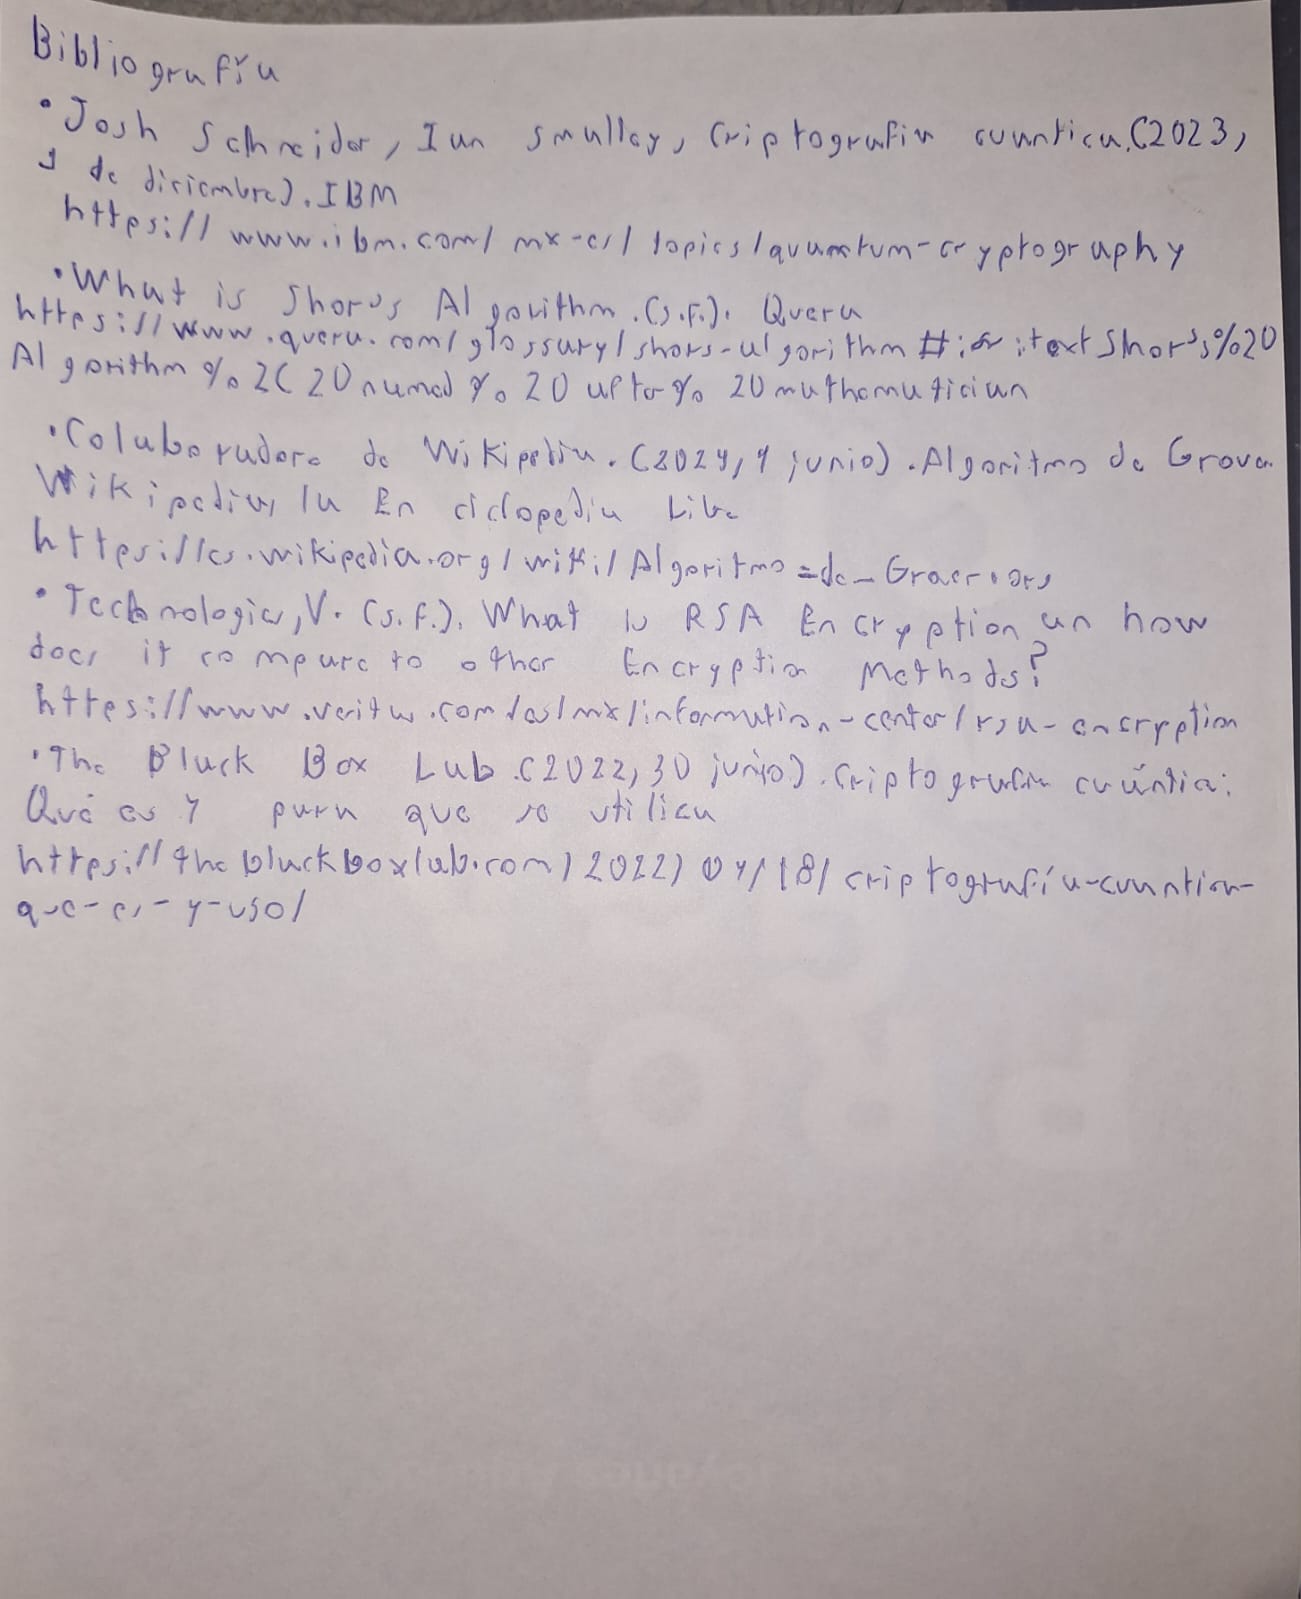 Bibliografía
• Josh Schneider, Ian Smalley, Criptografia cuantica. (2023,
1 de diciembre). IBM
https://www.ibm.com/mx-es/topics/quantum-cryptography
• What is Shor's Algorithm. (s.f.). Quera
https://www.quera.com/glossary/shors-algorithm#: :text Shor's%20
Algorithm%2C20named%20after%20mathematician
• Colaboradore de Wikipedia. (2024, 4 junio). Algoritmo de Grover
Wikipedia, la Enciclopedia Libre
https://es.wikipedia.org/wiki/Algoritmo=de_
• Technologies, V. (s.f.). What is RSA Encryption an how
does it compare to other Encryption Methods?
https://www.veritas.com/es/mx/information-center/rsa-encryption
• The Black Box Lab. (2022, 30 junio). Criptografia cuántica:
Qué es y para que se utiliza
https://theblackboxlab.com/2022/04/18/criptografía-cuantica-
que-es-y-uso/